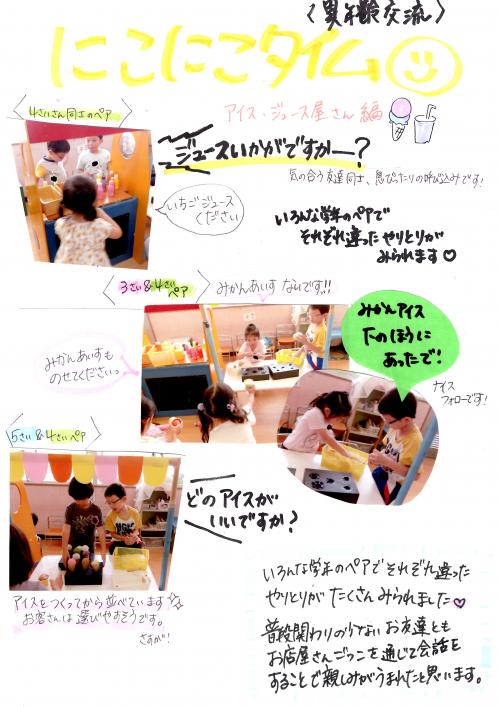 〈異年齢交流〉
にこにこタイム
アイス・ジュース屋さん編
4さいさん同士のペア
ジュースいかがですかー?
気の合う友達同士、息ぴったりの呼び込みです!
いちごジュース
ください
いろんな学年のペアで
それぞれ違ったやりとりが
みられます♡
3さい&4さい
ペア
みかんあいす ないです!!
みかんアイス
下のほうに
あったで!
みかんあいすも
のせてくださいっ
ナイス
フォローです!
5さい&4さいペア
どのアイスが
いいですか?
アイスをつくってから並べています
お客さんは選びやすそうです。
さすが!
いろんな学年のペアでそれぞれ違った
やりとりがたくさんみられました♡
普段関わりの少ないお友達とも
お店屋さんごっこを通じて会話を
することで親しみがうまれたと思います。